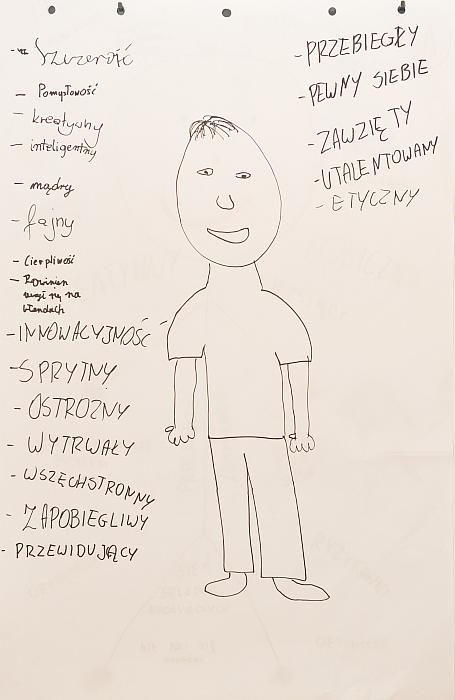 - Szczerość
- Pomysłowość
- kreatywny
- inteligentny
- mądry
- fajny
- Cierpliwość
- Powinien
uczyć się na
błędach
- INNOWACYJNOŚĆ
- SPRYTNY
- OSTROZNY
- WYTRWAŁY
- WSZECHSTRONNY
- ZAPOBIEGLIWY
- PRZEWIDUJĄCY
- PRZEBIEGŁY
- PEWNY SIEBIE
- ZAWZIĘTY
- UTALENTOWANY
- ETYCZNY